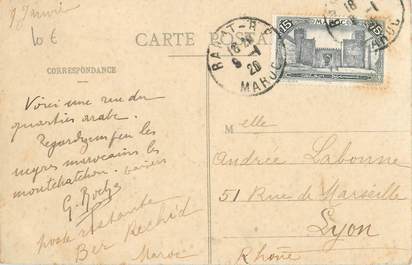 10 €
CARTE POSTALE
CORRESPONDANCE
RABAT-R.P.
MAROC
15
MAROC
15
Voici une rue du
quartier arabe.
Regardez un peu les
nègres marocains les
Baisers
G. Roche
poste restante
Ber Rechid
Maroc
Melle
Andrée Labonne
51 Rue de Marseille
Lyon
Rhône